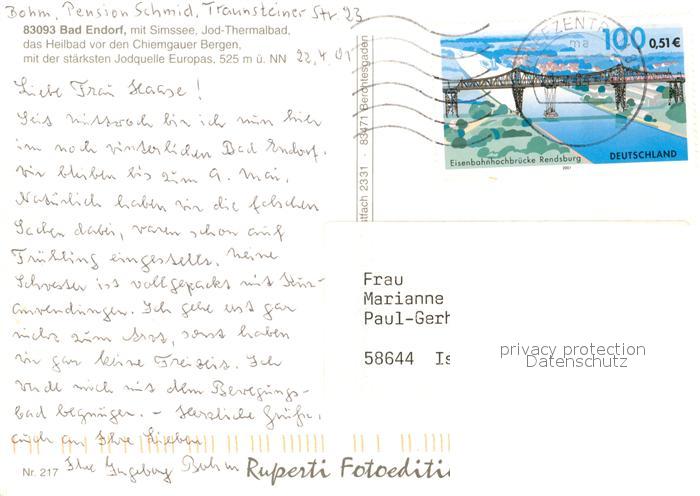 Bohm, Pension Schmid, Traunsteiner Str. 23
83093 Bad Endorf, mit Simssee, Jod-Thermalbad,
das Heilbad vor den Chiemgauer Bergen,
mit der stärksten Jodquelle Europas, 525 m ü. NN
22.4.01
Liebe Frau Haase!
Seit Mittwoch bin ich nun hier
im noch winterlichen Bad Endorf.
Wir bleiben bis zum 9. Mai.
Natürlich haben wir die falschen
Sachen dabei, waren schon auf
Frühling eingestellt. Meine
Schwester ist vollgepackt mit Kur-
anwendungen. Ich gehe erst gar
nicht zum Arzt, sonst haben
wir gar keine Freizeit. Ich
werde mich mit dem Bewegungs-
bad begnügen. – Herzliche Grüße,
auch an Ihre Lieben
Ihre Ingeborg Bohm
Nr. 217
Ruperti Fotoeditio
stfach 2331 · 83471 Berchtesgaden
EZENTR
100 0,51€
Eisenbahnhochbrücke Rendsburg
2001
DEUTSCHLAND
Frau
Marianne
Paul-Gerh
58644 Is
privacy protection
Datenschutz